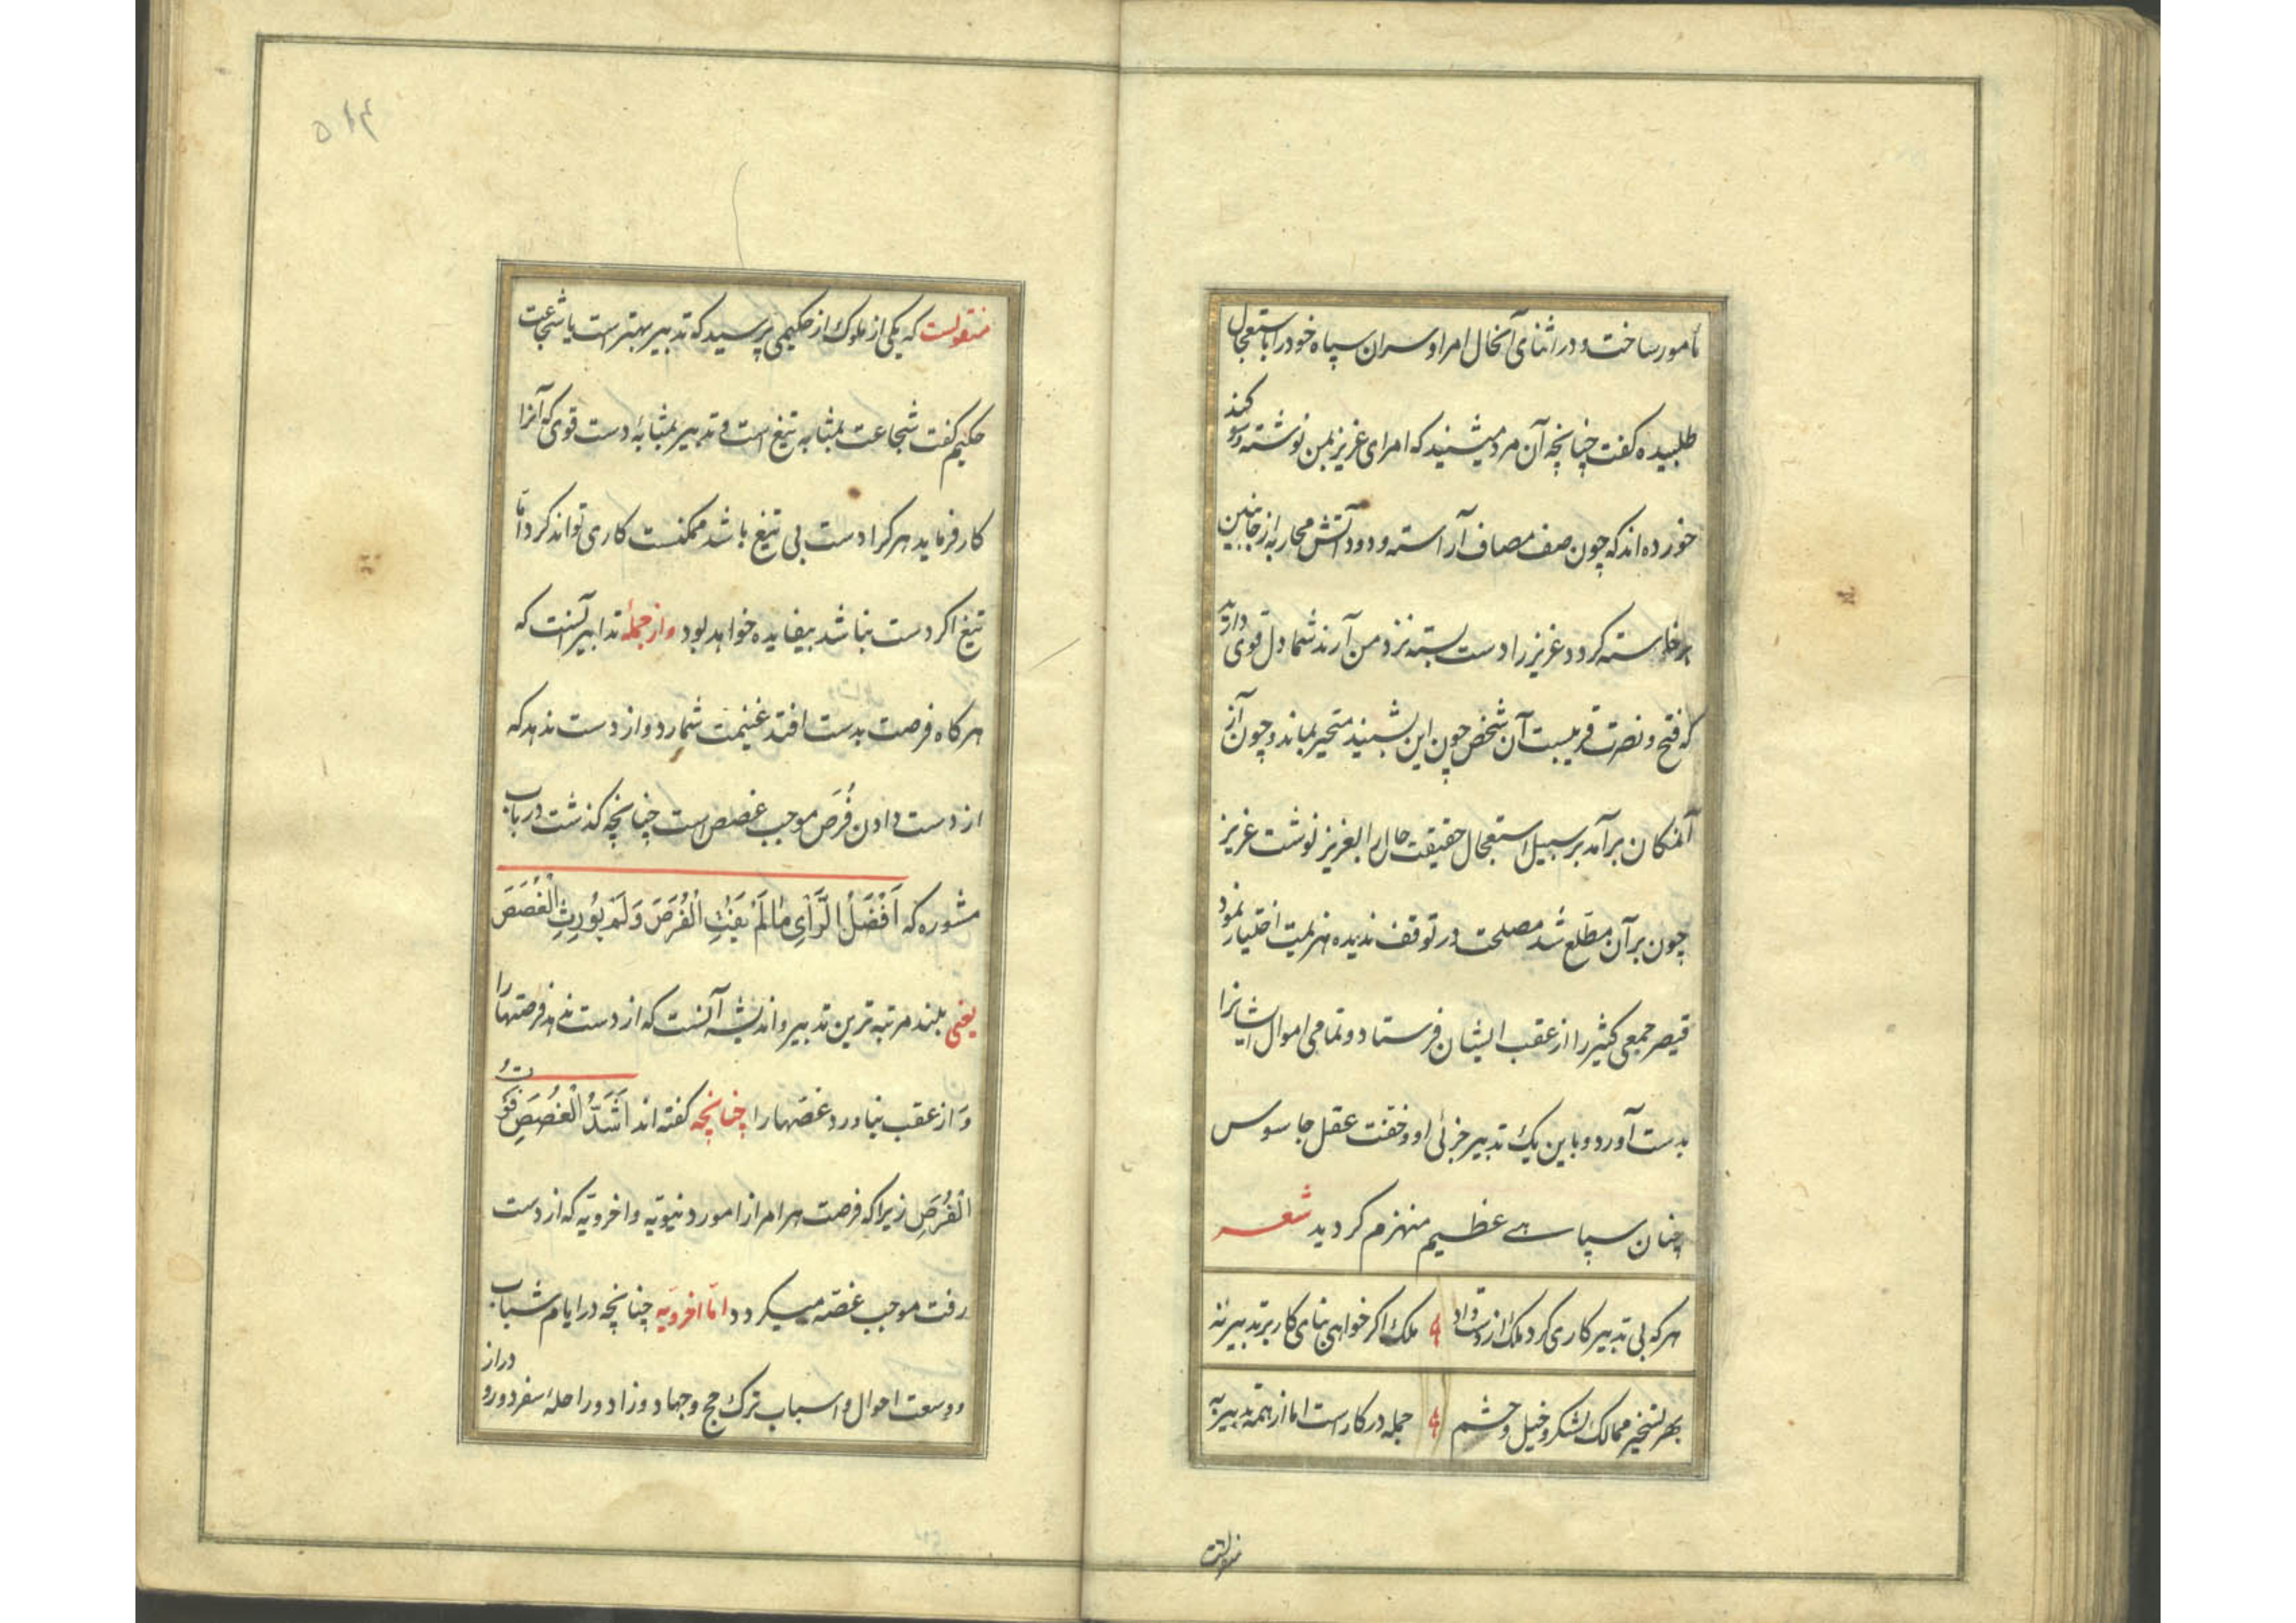 مامور ساخت و در اثنای آنحال امرا و سران سپاه خود را باستعجال
طلبیده کفت چنانچه آن مرد میشنید که امرای عزیز بمن نوشته و سوکند
خورده اند که چون صف مصاف آراسته و دود آتش محاربه از جانبین
برخاسته کردد عزیز را دست بسته نزد من آرند شما دل قوی دارید
که فتح و نصرت قریبست آن شخص چون این بشنید متحیر بماند و چون از
آنمکان برآمد بر سبیل استعجال حقیقت حال را بعزیز نوشت عزیز
چون بر آن مطّلع شد مصلحت در توقف ندیده هزیمت اختیار نمود
قیصر جمعی کثیر را از عقب ایشان فرستاد و تمامی اموال ایشانرا
بدست آورد و باین یک تدبیر جزئی او و خفت عقل جاسوس
چنان سپاهے عظیم منهزم کردید شعر
هر که بی تدبیر کاری کرد ملک از دست داد ملک اکر خواهی بنای کار بر تدبیر نه
بهر تسخیر ممالک لشکر و خیل و حشم جمله در کار است اما از همه تدبیر به
منقولست
منقولست که یکی از ملوک از حکیمی پرسید که تدبیر بهتر است یا شجاعت
حکیم کفت شجاعت بمثابه تیغ است و تدبیر بمثابهٔ دست قوی که آنرا
کار فرماید هر کرا دست بی تیغ باشد ممکنست کاری تواند کرد امّا
تیغ اکر دست نباشد بیفایده خواهد بود و از جملهٔ تدابیر آنست که
هر کاه فرصت بدست افتد غنیمت شمارد و از دست ندهد که
از دست دادن فُرَص موجب غصص است چنانچه کذشت در باب
مشوره که اَفْضَلُ الرَّاْیِ مٰا لَمْ یَفُتِ الْفُرَصَ وَلَمْ یُورِثِ الْغُصَصَ
یعنی بلند مرتبه ترین تدبیر و اندیشه آنست که از دست ندهد فرصتها را
وَ از عقب نیاورد غصّها را چنانچه کفته اند اَشَدُّ الْغُصَصِ فَوْتُ
الْفُرَصِ زیرا که فرصت هر امر از امور دنیویّه و اخرویّه که از دست
رفت موجب غصّه میکردد امّا اخرویّه چنانچه در ایام شباب
و وسعت احوال و اسباب ترک حج و جهاد و زاد و راحلهٔ سفر دور و دراز